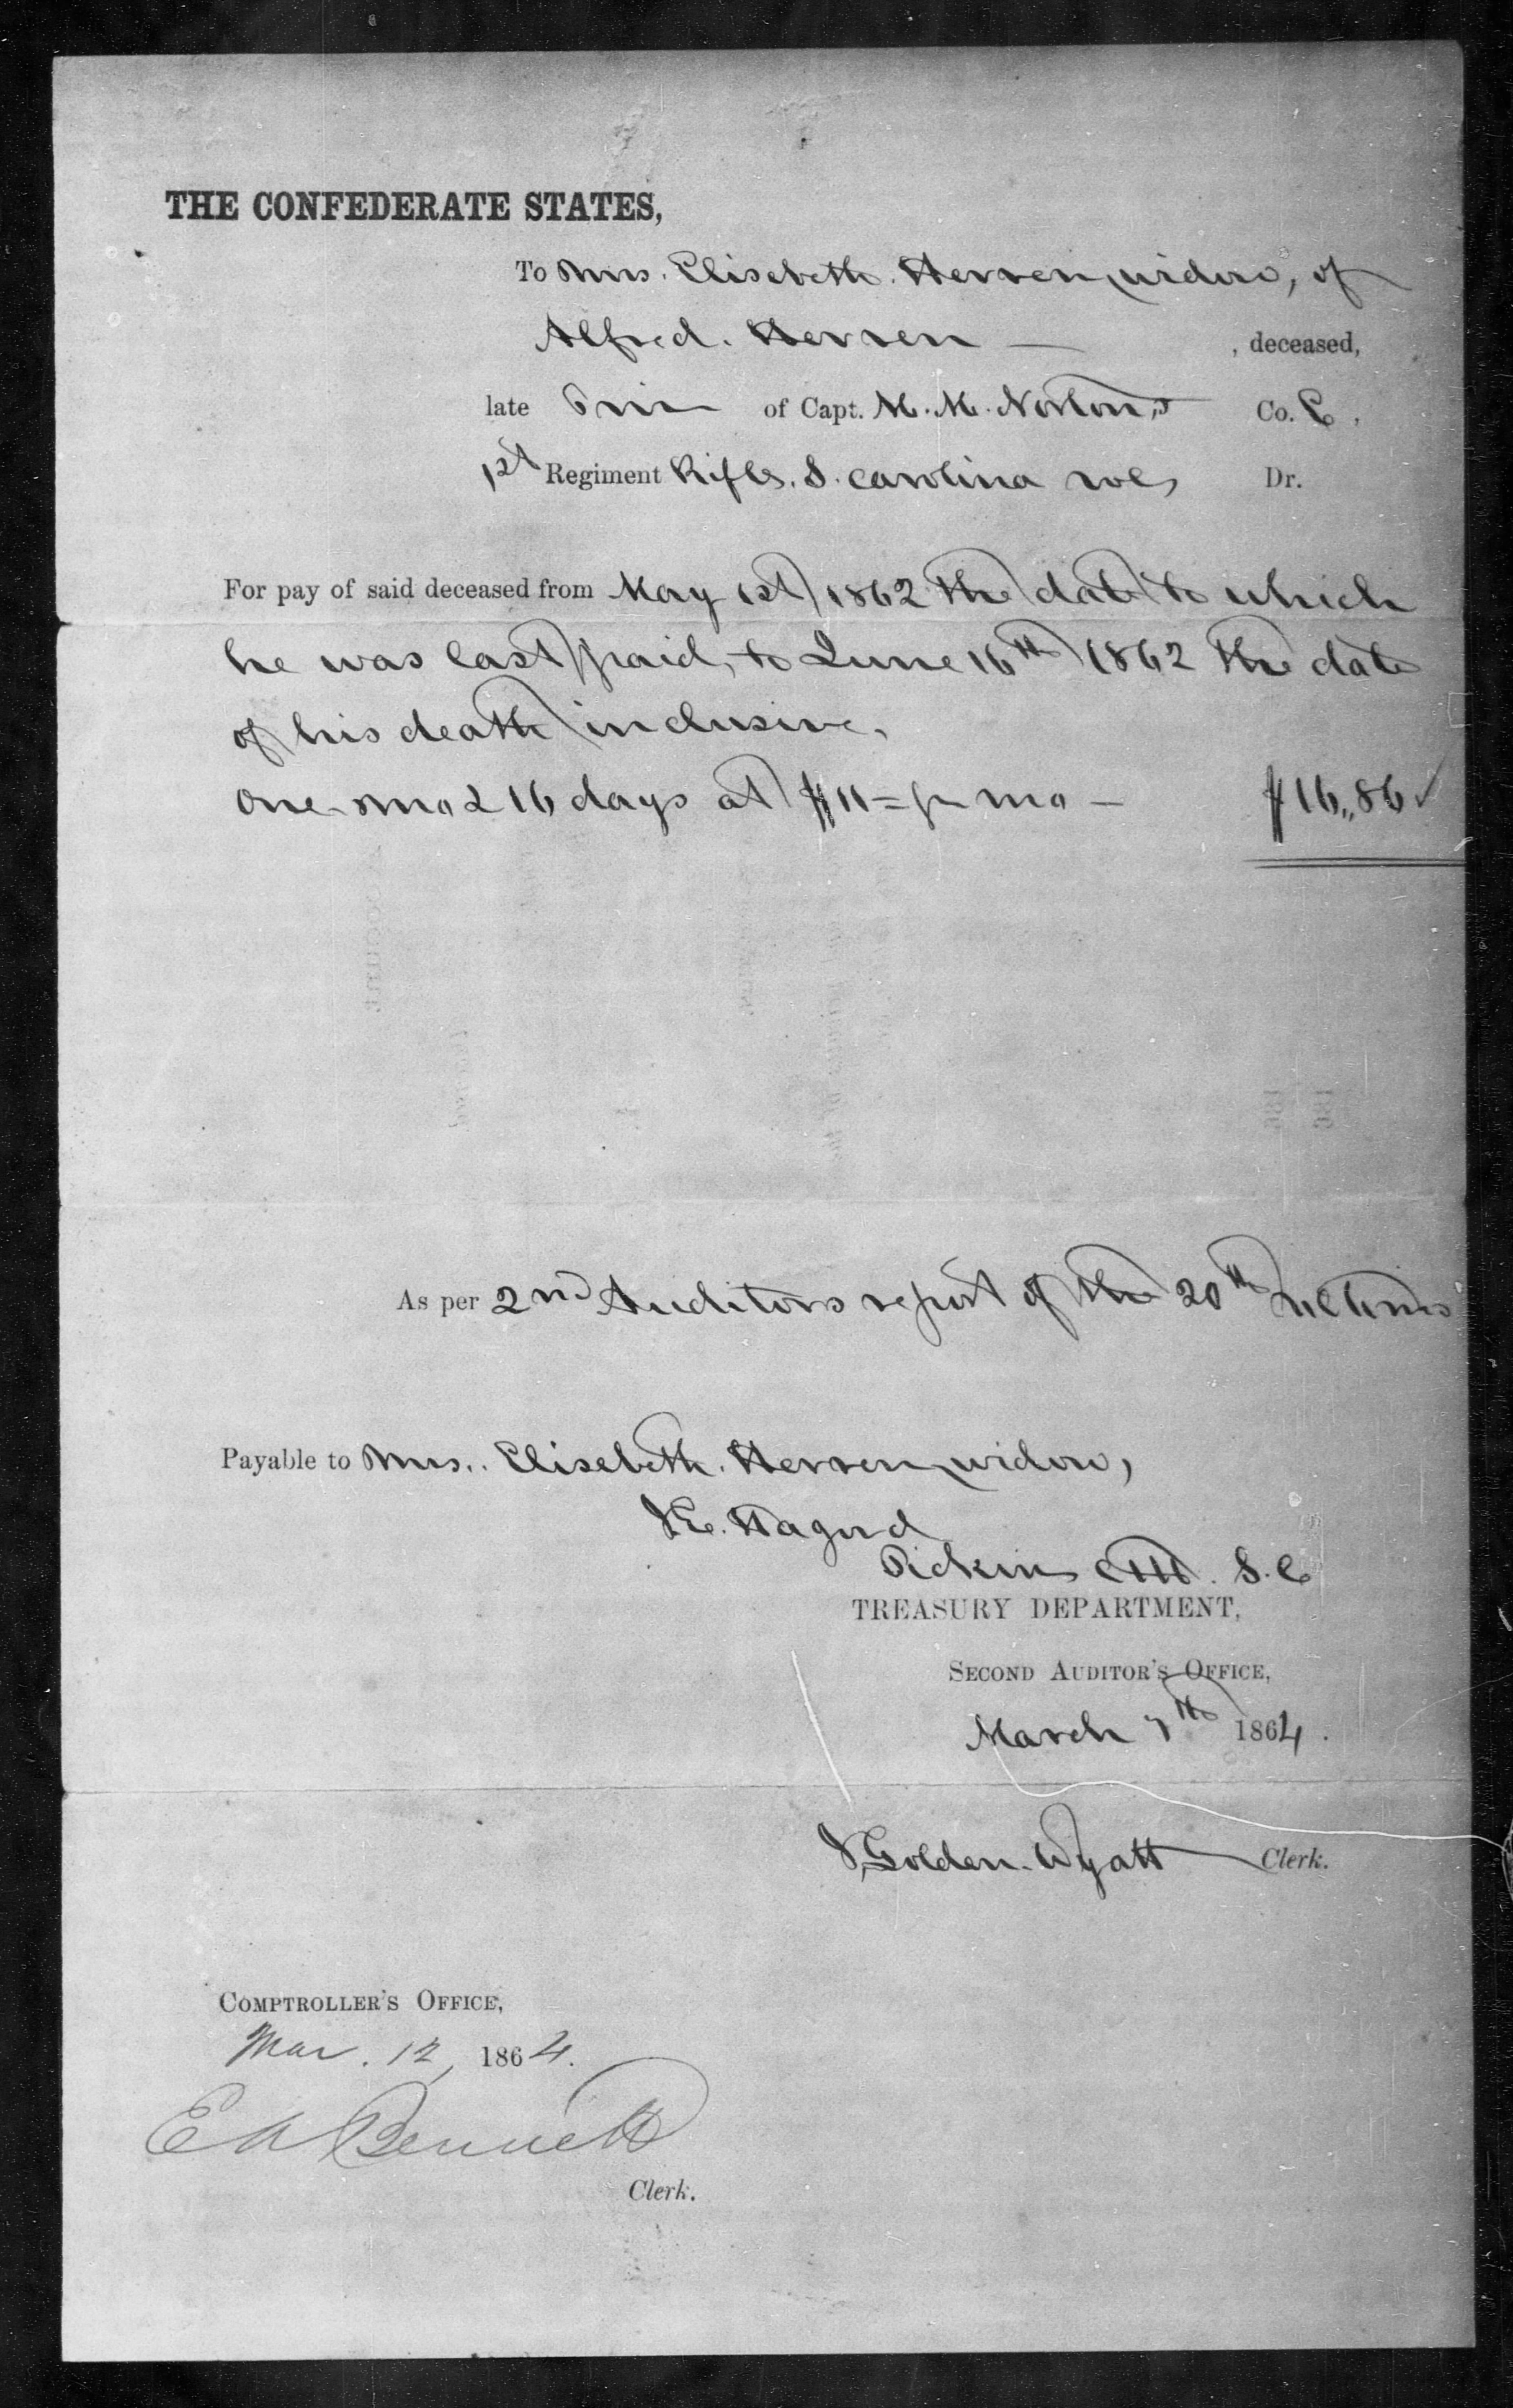 THE CONFEDERATE STATES,
To Mrs. Elisebeth. Herren widow, of
Alfred. Herren — , deceased,
late Priv of Capt. M. M. Norton's Co. C.
1st Regiment Rifles. S. Carolina vols Dr.
For pay of said deceased from May 1st 1862 the date to which
he was last paid, to June 16th 1862 the date
of his death inclusive,
One mo & 16 days at $11= pr mo — $16,,86 ✓
As per 2nd Auditors report of the 20th
Payable to Mrs.. Elisebeth. Herren widow,
Hagood
Pickins S.C
TREASURY DEPARTMENT,
SECOND AUDITOR'S OFFICE,
March 7th 1864.
J Golden. Wyatt Clerk.
COMPTROLLER'S OFFICE,
Mar. 12, 1864.
E A Bennett
Clerk.